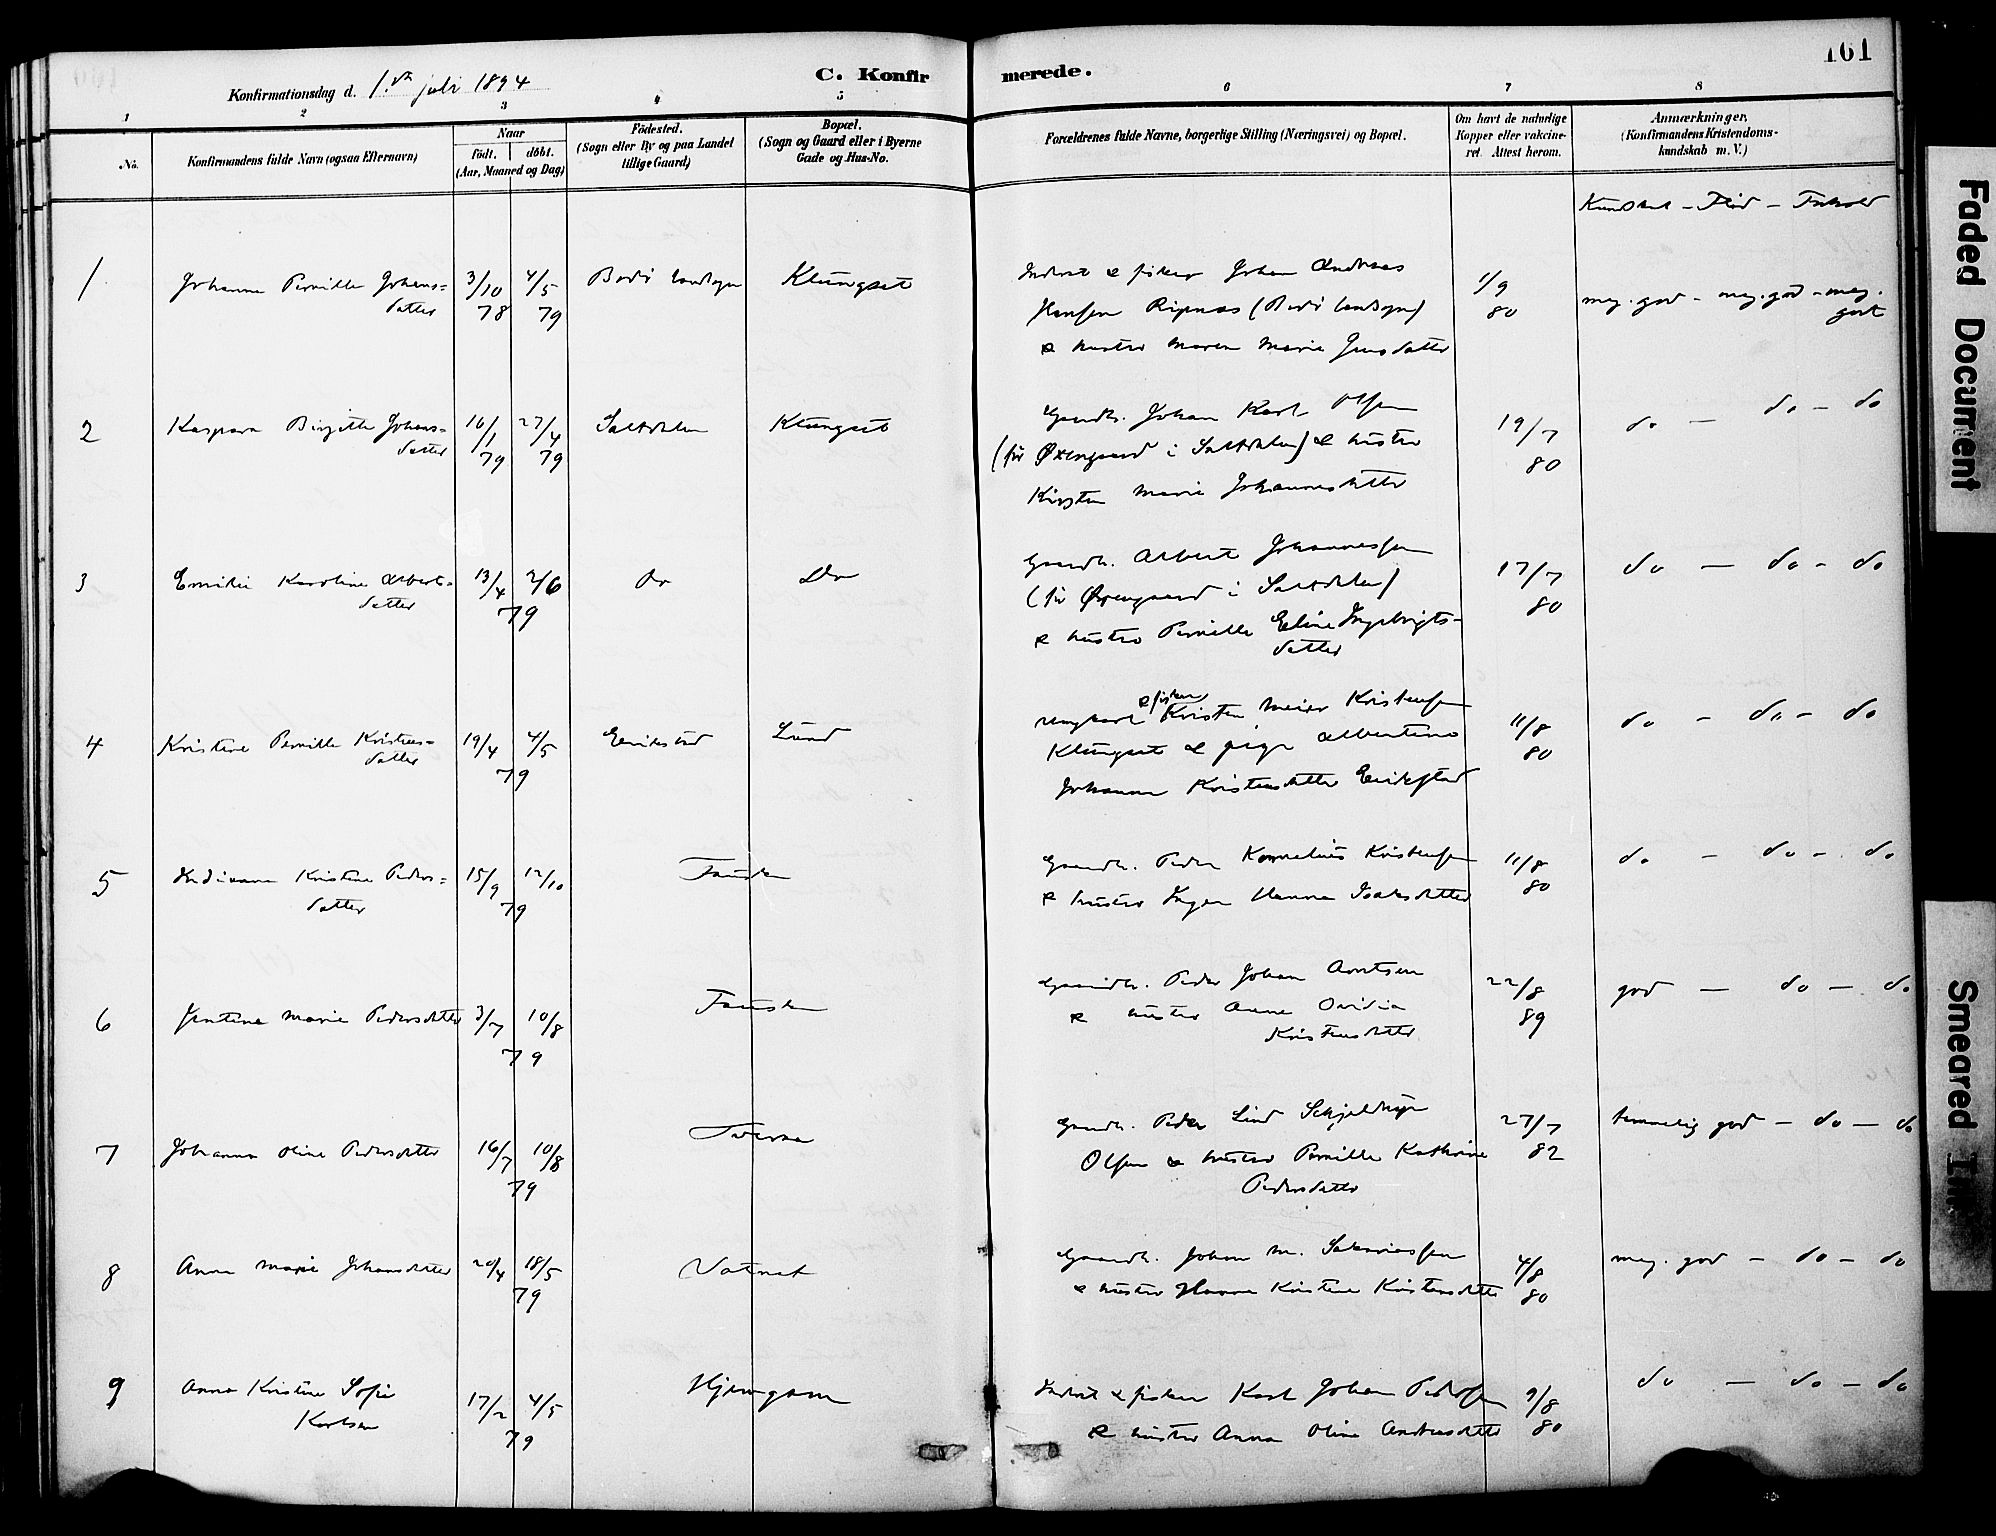 161
C. Konfirmerede.
Konfirmationsdag d. 1.ste juli 1894
1 2 3 4 5 6 7 8
No.
Konfirmandens fulde Navn (ogsaa Efternavn)
Naar
födt. döbt.
(Aar, Maaned og Dag)
Födested.
(Sogn eller By og paa Landet
tillige Gaard)
Bopæl.
(Sogn og Gaard eller i Byerne
Gade og Hus-No.
Forældrenes fulde Navne, borgerlige Stilling (Næringsvei) og Bopæl.
Om havt de naturlige
Kopper eller vakcine-
ret. Attest herom.
Anmærkninger,
(Konfirmandens Kristendoms-
kundskab m. V.)
Kundskab – Flid – Forhold
1 Johanna Pernille Johans= 3/10 4/5 Bodö landsogn Klungset
datter 78 79
Inderst & fisker Johan Andreas
Hansen Ripnæs (Bodö landsogn)
& hustru Maren Marie Jensdatter
1/9
80
meg. god – meg. god – meg.
godt
2 Kaspara Birgitte Johans= 16/1 27/4 Saltdalen Klungset
datter 79 79
Gaardb. Johan Karl Olsen
(för Øxengaard i Saltdalen) & hustru
Kirsten Marie Johannesdatter
19/7
80
do – do – do
3 Emilie Karoline Alberts= 13/4 2/6 do Do
datter 79
Gaardb. Albert Johannessen
(för Øxengaard i Saltdalen)
& hustru Pernille Eline Ingebrigts-
datter
17/7
80
do – do – do
4 Kristine Pernille Kristens= 19/4 4/5 Erikstad Lund
datter 79
& fisker
Ungkarl Kristen Meier Kristensen
Klungset & pige Albertine
Johanna Kristensdatter Erikstad
11/8
80
do – do – do
5 Indianna Kristine Peders= 15/9 12/10 Fauske
datter 79
Gaardb. Peder Kornelius Kristensen
& hustru Inger Hanna Isaksdatter
11/8
80
do – do – do
6 Jentine Marie Pedersdatter 3/7 10/8 Fauske
79
Gaardb. Peder Johan Arntsen
& hustru Anne Ovidia
Kristensdatter
22/8
89
god – do – do
7 Johanna Oline Pedersdatter 16/7 10/8 Tveraa
79
Gaardb. Peder Lind Schjeldrup
Olsen & hustru Pernille Kathrine
Pedersdatter
27/7
82
temmelig god – do – do
8 Anna Marie Johansdatter 20/4 18/5 Vatnet
79
Gaardb. Johan M. Sakariassen
& hustru Hanna Kristine Kristensdatter
4/8
80
meg. god – do – do
9 Anna Kristine Sofie 17/2 4/5 Hjemgam
Karlsen 79
Inderst & fisker Karl Johan Pedersen
& hustru Anna Oline Andreasdatter
9/8
80
do – do – do
Faded Document
Smeared Ink